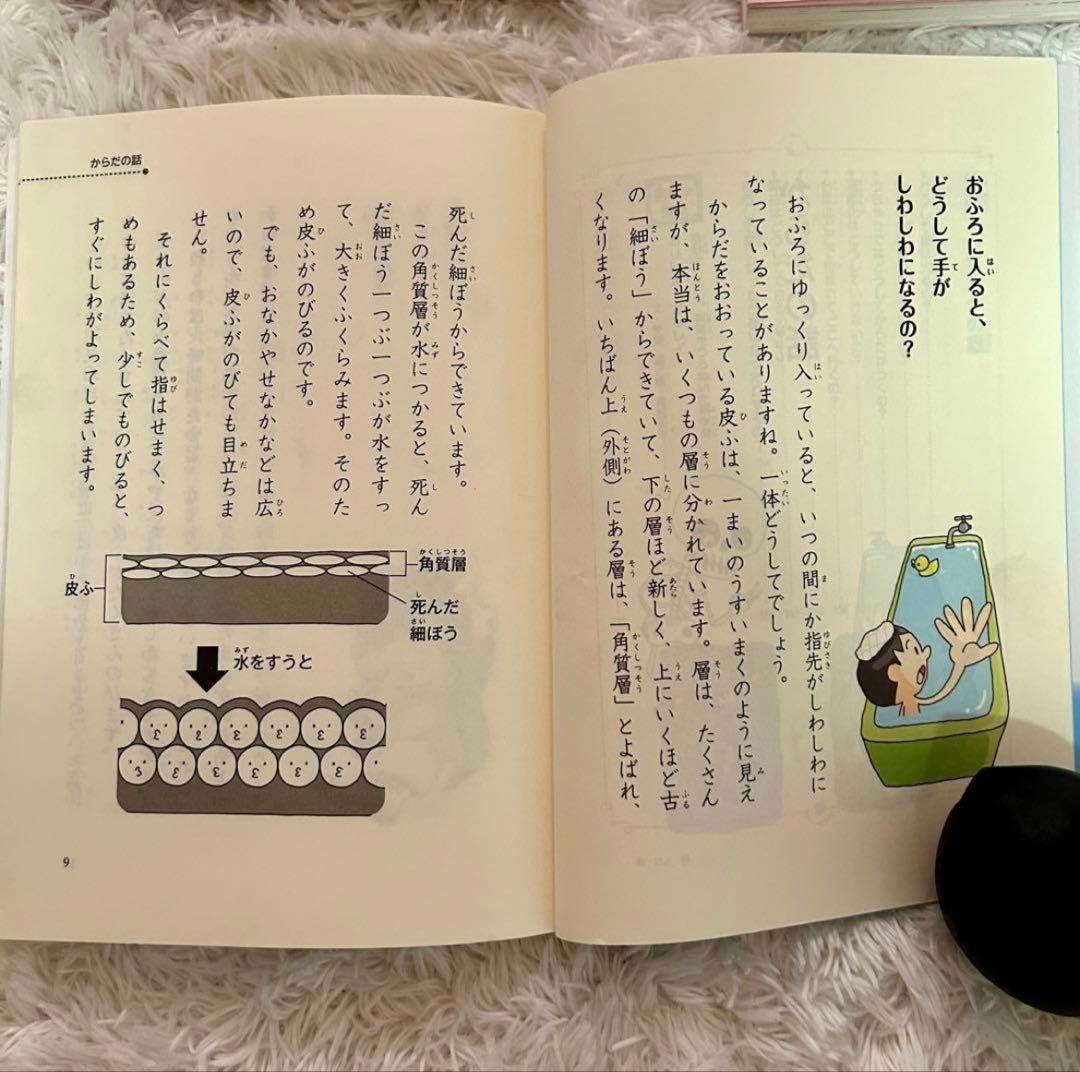 おふろに入ると、
どうして手が
しわしわになるの？
おふろにゆっくり入っていると、いつの間にか指先がしわしわに
なっていることがありますね。一体どうしてでしょう。
からだをおおっている皮ふは、一まいのうすいまくのように見え
ますが、本当は、いくつもの層に分かれています。層は、たくさん
の「細ぼう」からできていて、下の層ほど新しく、上にいくほど古
くなります。いちばん上（外側）にある層は、「角質層」とよばれ、
からだの話
死んだ細ぼうからできています。
この角質層が水につかると、死ん
だ細ぼう一つぶ一つぶが水をすっ
て、大きくふくらみます。そのた
め皮ふがのびるのです。
でも、おなかやせなかなどは広
いので、皮ふがのびても目立ちま
せん。
それにくらべて指はせまく、つ
めもあるため、少しでものびると、
すぐにしわがよってしまいます。
皮ふ
角質層
死んだ
細ぼう
水をすうと
9